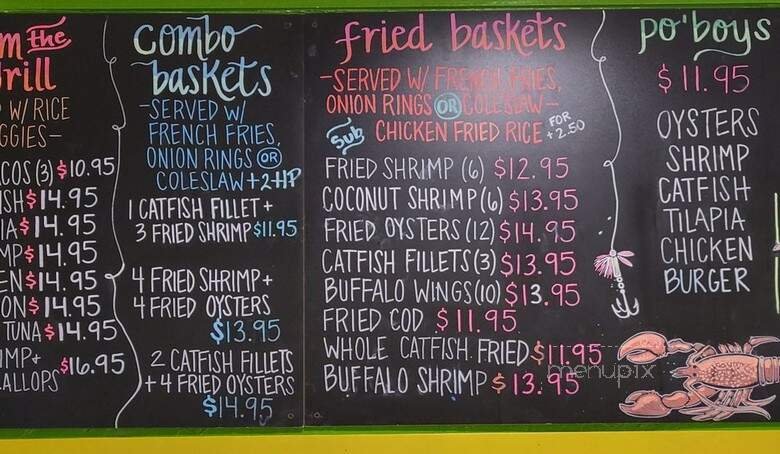 the
W/ RICE
(3) $10.95
$14.95
$14.95
$14.95
$14.95
$14.95
TUNA $14.95
$16.95
combo
baskets
-SERVED W/
FRENCH FRIES,
ONION RINGS OR
COLESLAW +2HP
1 CATFISH FILLET +
3 FRIED SHRIMP $11.95
4 FRIED SHRIMP +
4 FRIED OYSTERS
$13.95
2 CATFISH FILLETS
+ 4 FRIED OYSTERS
$14.95
fried baskets
-SERVED W/ FRENCH FRIES,
ONION RINGS OR COLESLAW-
Sub CHICKEN FRIED RICE FOR +2.50
FRIED SHRIMP (6) $12.95
COCONUT SHRIMP (6) $13.95
FRIED OYSTERS (12) $14.95
CATFISH FILLETS (3) $13.95
BUFFALO WINGS (10) $13.95
FRIED COD $11.95
WHOLE CATFISH FRIED $11.95
BUFFALO SHRIMP $13.95
po'boys
$11.95
OYSTERS
SHRIMP
CATFISH
TILAPIA
CHICKEN
BURGER
menupix